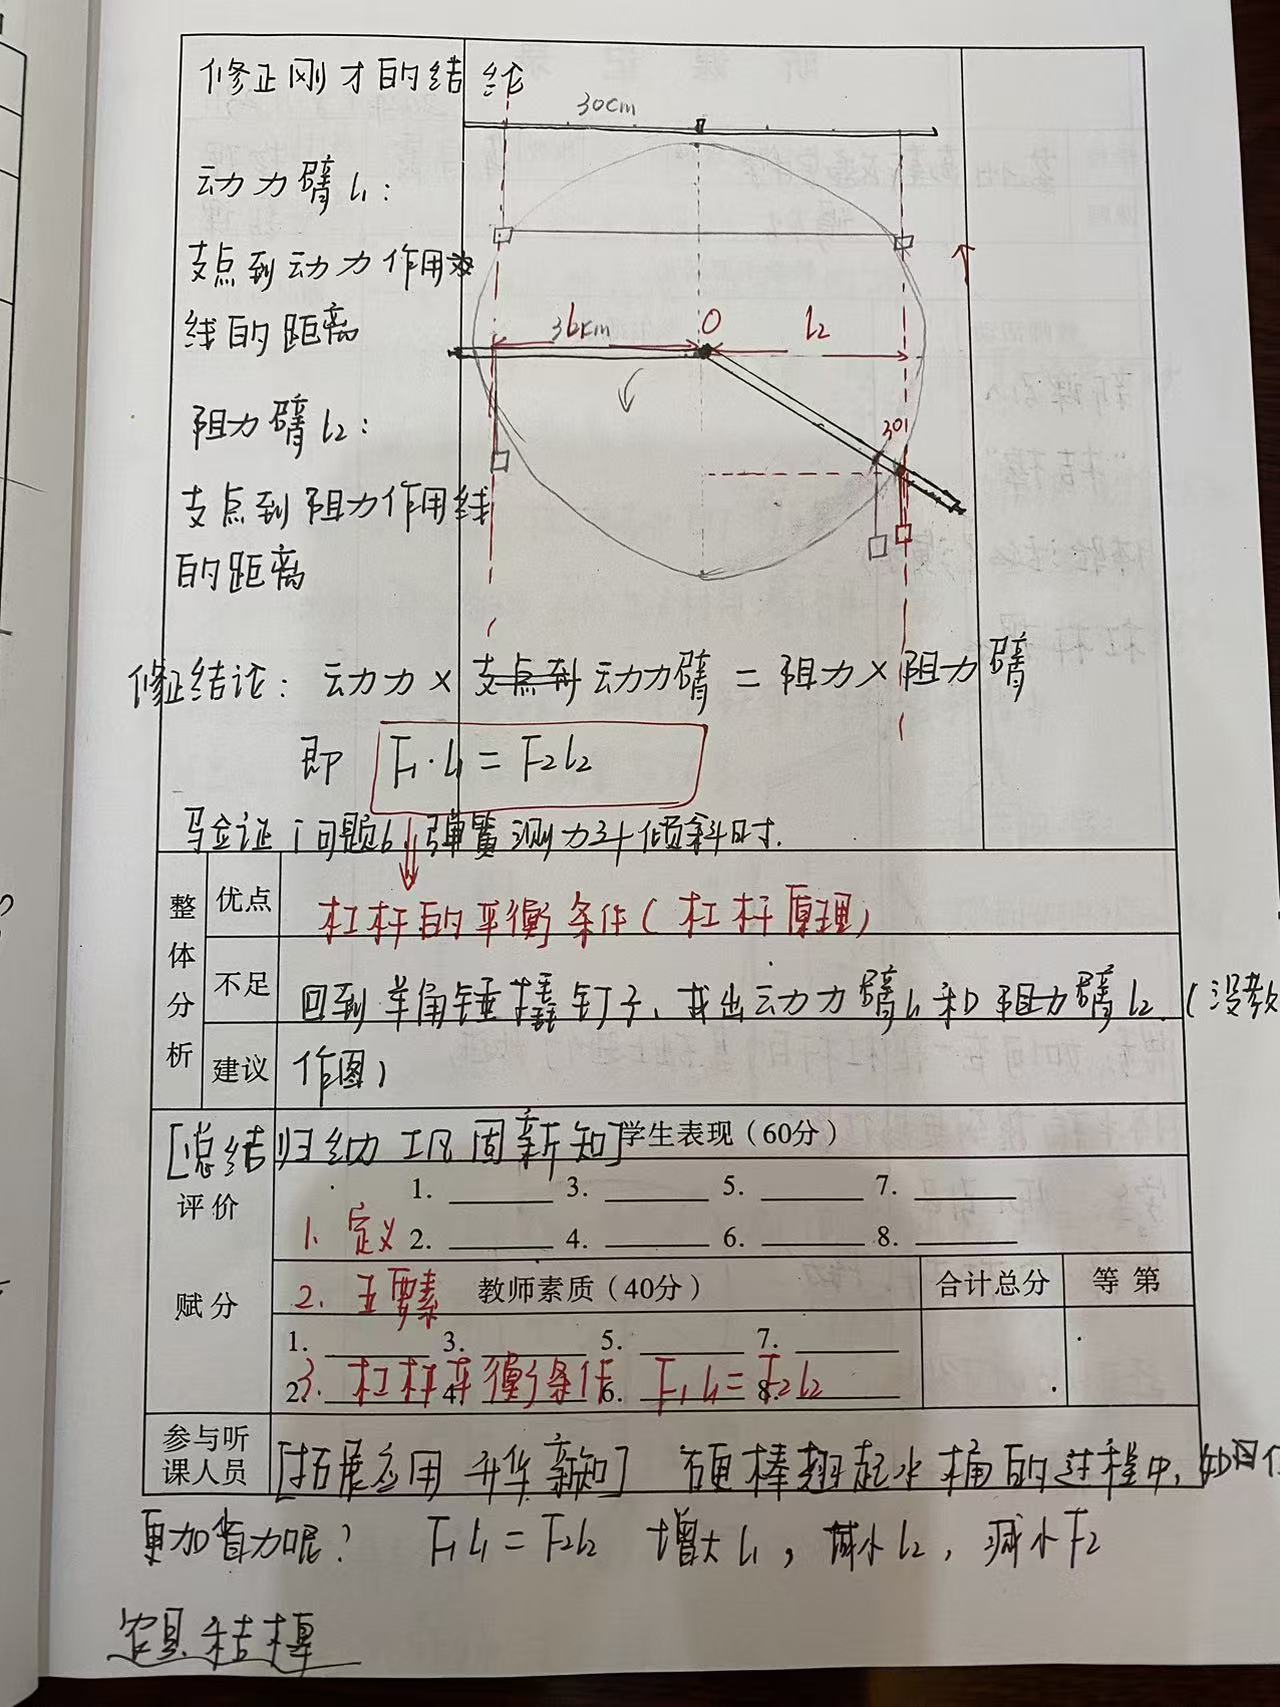 修正刚才的结论
30cm
动力臂l₁:
支点到动力作用
线的距离
36cm
O
l₂
阻力臂l₂:
30
支点到阻力作用线
的距离
修正结论: 动力力 × 支点到 动力力臂 = 阻力 × 阻力臂
即 F₁·l₁ = F₂l₂
验证问题6 弹簧测力计倾斜时.
整体分析
优点
杠杆的平衡条件(杠杆原理)
不足
回到羊角锤撬钉子, 找出动力力臂l₁和阻力臂l₂. (没教
建议
作图)
[总结归纳 巩固新知]
学生表现（60分）
评价
1. 3. 5. 7.
1. 定义
2. 4. 6. 8.
赋分
2. 五要素
教师素质（40分）
合计总分
等 第
1. 3. 5. 7.
2. 4. 6. 8.
3. 杠杆平衡条件 F₁l₁ = F₂l₂
参与听课人员
[拓展应用 升华新知] 硬棒翘起水桶的过程中, 如何
更加省力呢? F₁l₁ = F₂l₂ 增大l₁, 减小l₂, 减小F₂
农具桔槔